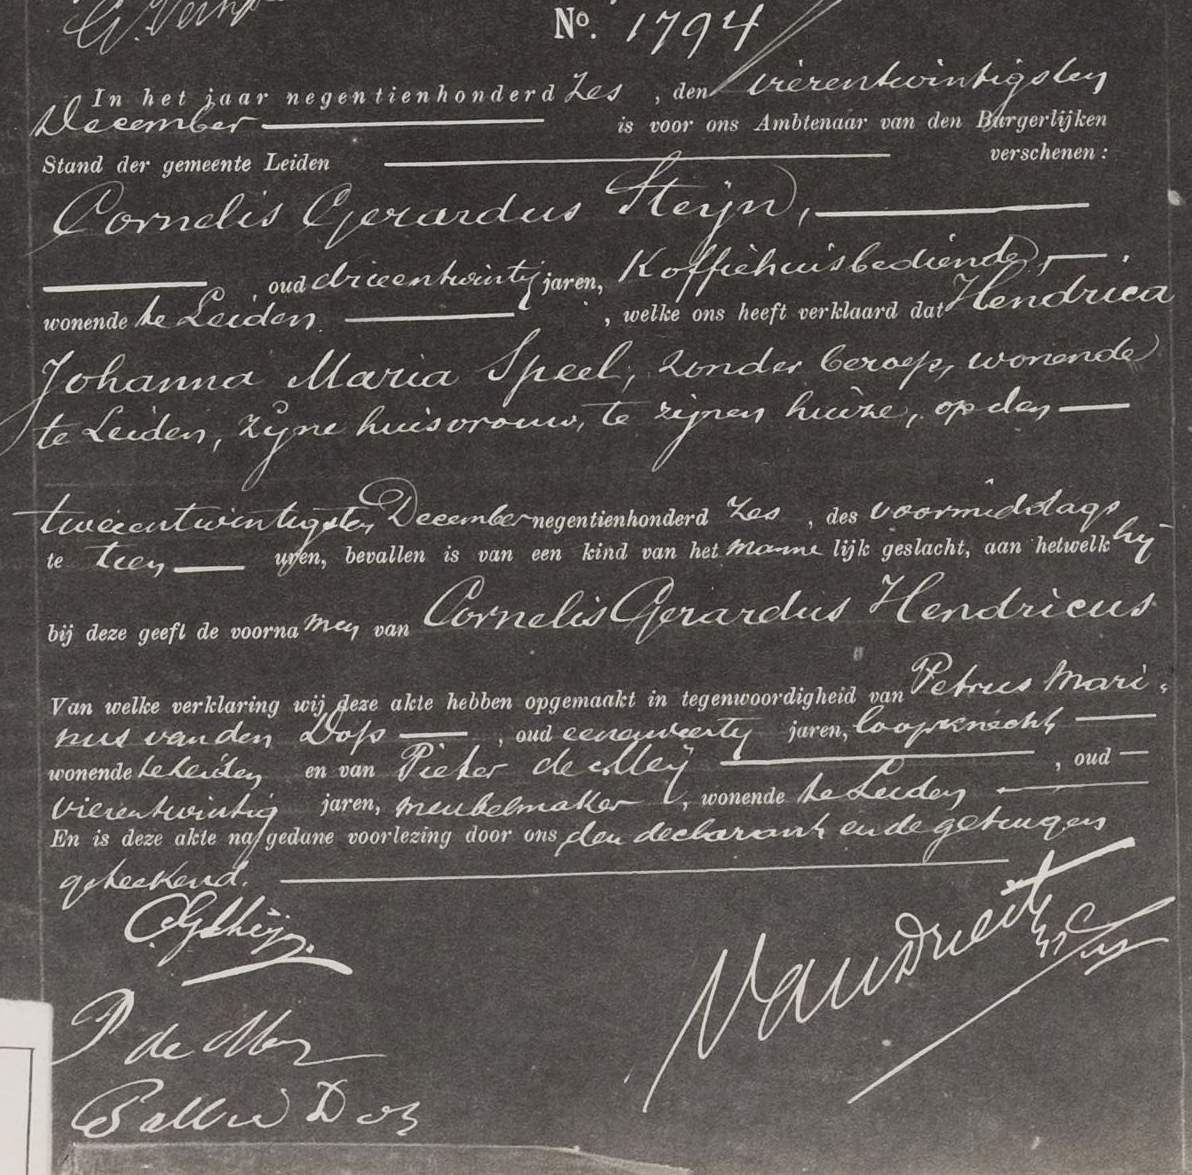 No. 1794
In het jaar negentienhonderd zes, den vierentwintigsten
December is voor ons Ambtenaar van den Burgerlijken
Stand der gemeente Leiden verschenen:
Cornelis Gerardus Steijn,
oud drieentwintig jaren, Koffiehuisbediende,
wonende te Leiden, welke ons heeft verklaard dat Hendrica
Johanna Maria Speel, zonder beroep, wonende
te Leiden, zijne huisvrouw, te zijnen huize, op den
tweeentwintigsten December negentienhonderd zes, des voormiddags
te tien uren, bevallen is van een kind van het mannelijk geslacht, aan hetwelk hij
bij deze geeft de voornamen van Cornelis Gerardus Hendricus
Van welke verklaring wij deze akte hebben opgemaakt in tegenwoordigheid van Petrus Mari-
nus van den Dop, oud eenenveertig jaren, loopknecht,
wonende te Leiden en van Pieter de Meij, oud
vierentwintig jaren, meubelmaker, wonende te Leiden
En is deze akte na gedane voorlezing door ons, den declarant en de getuigen
geteekend.
CGSteijn.
P de Meij